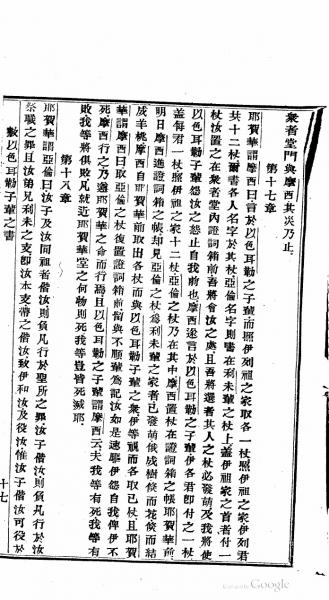 衆者堂門與摩西其災乃止
第十七章
耶賀華謂摩西曰言於以色耳勒子輩而照伊列祖之家取各一杖照伊祖之家伊列君
共十二杖爾書各人名字於其杖亞倫名字則書在利未輩之杖上蓋伊祖家之首者付一
杖汝置之在衆者堂內證詞箱前吾將會汝之處且吾將選者其人之杖必發萌及我將使
以色耳勒子輩怨汝之怨止自我前也摩西遂言於以色耳勒子輩伊各君即付之一杖
蓋每君一杖照伊祖之家十二杖亞倫之杖乃在其中摩西置杖在證詞箱之帳耶賀華前
明日摩西進證詞箱之帳却見亞倫之杖爲利未輩之家者已發萌候成樹候而花候而結
成羊桃摩西自耶賀華前取出各杖而與以色耳勒之子輩衆伊等視而各取已杖且耶賀
華謂摩西曰取亞倫之杖復置證詞箱前留與不順輩爲記汝如是速驅伊怨自我俾伊不
死摩西行之乃遵耶賀華之命而行焉且以色耳勒之子輩謂摩西云夫我等有死我等有
敗我等將俱敗凡就近耶賀華堂之何物則死我等豈皆死滅耶
第十八章
耶賀華謂亞倫曰汝子及汝同祖者偕汝則負凡行於聖所之罪汝子偕汝則負凡行於汝
祭職之罪且汝弟兄利未之支即汝本支帶之偕汝致伊和汝及役汝惟汝子偕汝可役於
數以色耳勒子輩之書
十七
Google